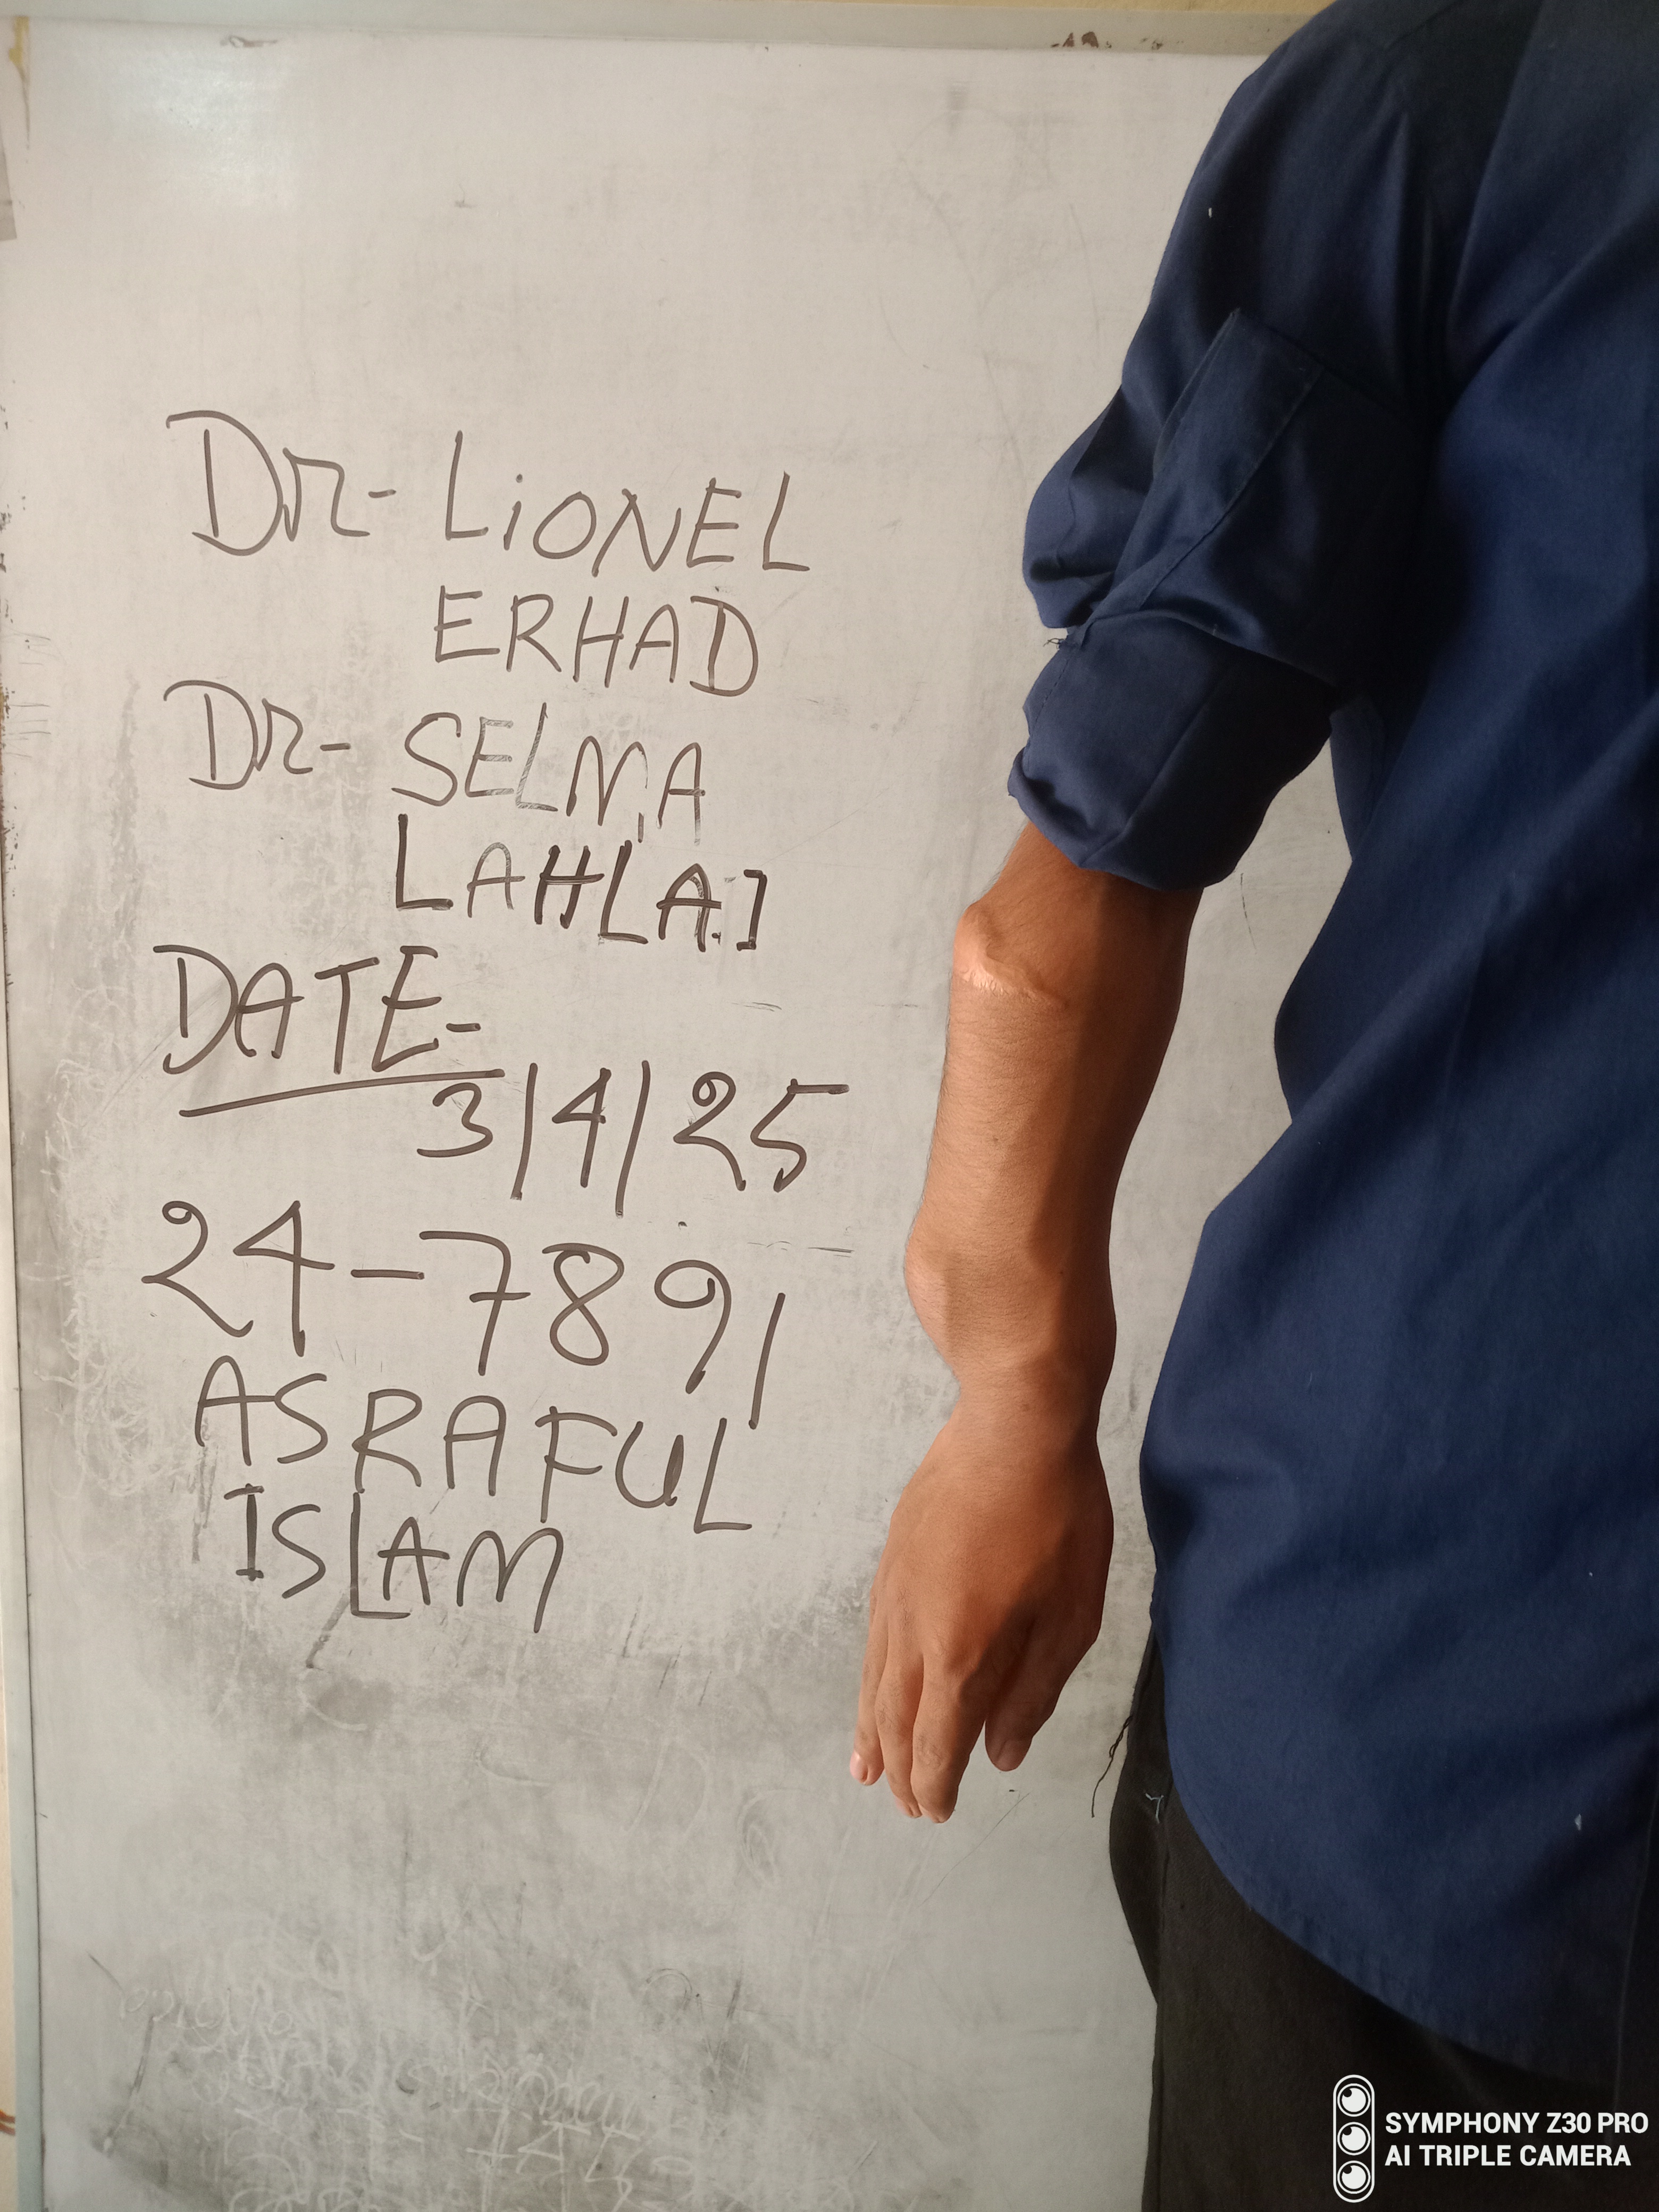 Dr- LiONEL
ERHAD
Dr- SELMA
LAHLAI
DATE-
3/4/25
24-7891
ASRAFUL
ISLAM
SYMPHONY Z30 PRO
AI TRIPLE CAMERA